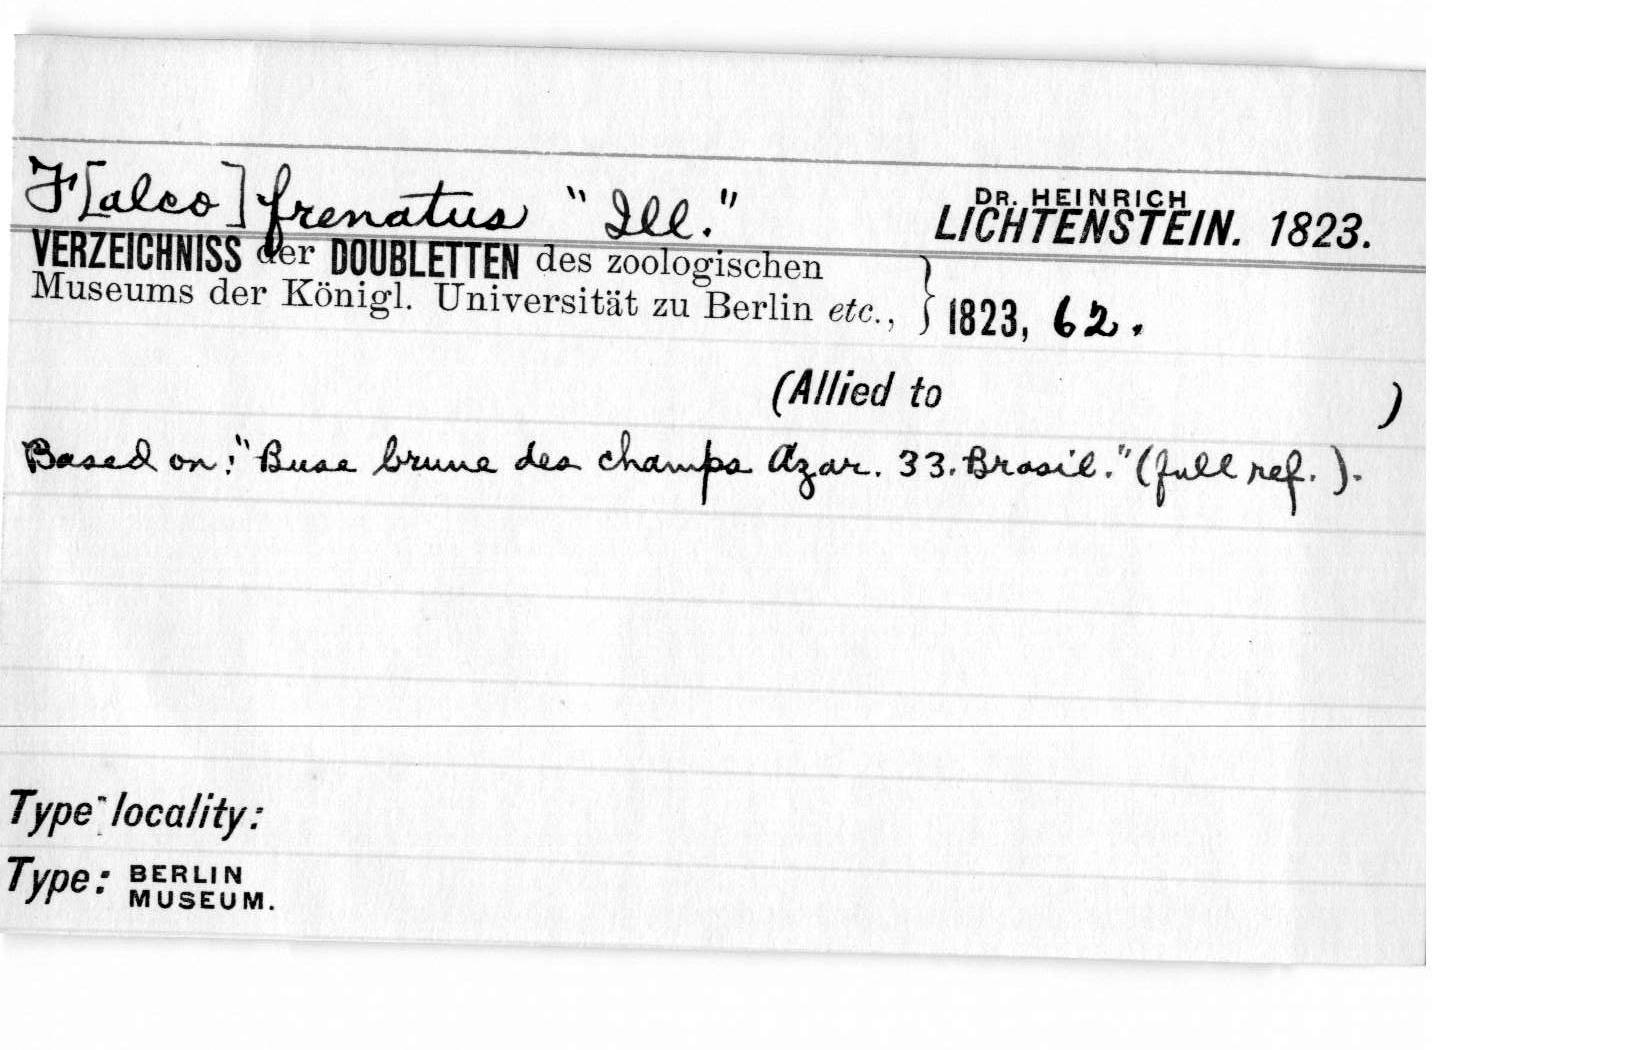 F[alco] frenatus "Ill."
DR. HEINRICH
LICHTENSTEIN. 1823.
VERZEICHNISS der DOUBLETTEN des zoologischen
Museums der Königl. Universität zu Berlin etc., } 1823, 62.
(Allied to )
Based on: "Buse brune des champs Azar. 33. Brasil." (full ref.).
Type locality:
Type: BERLIN
MUSEUM.